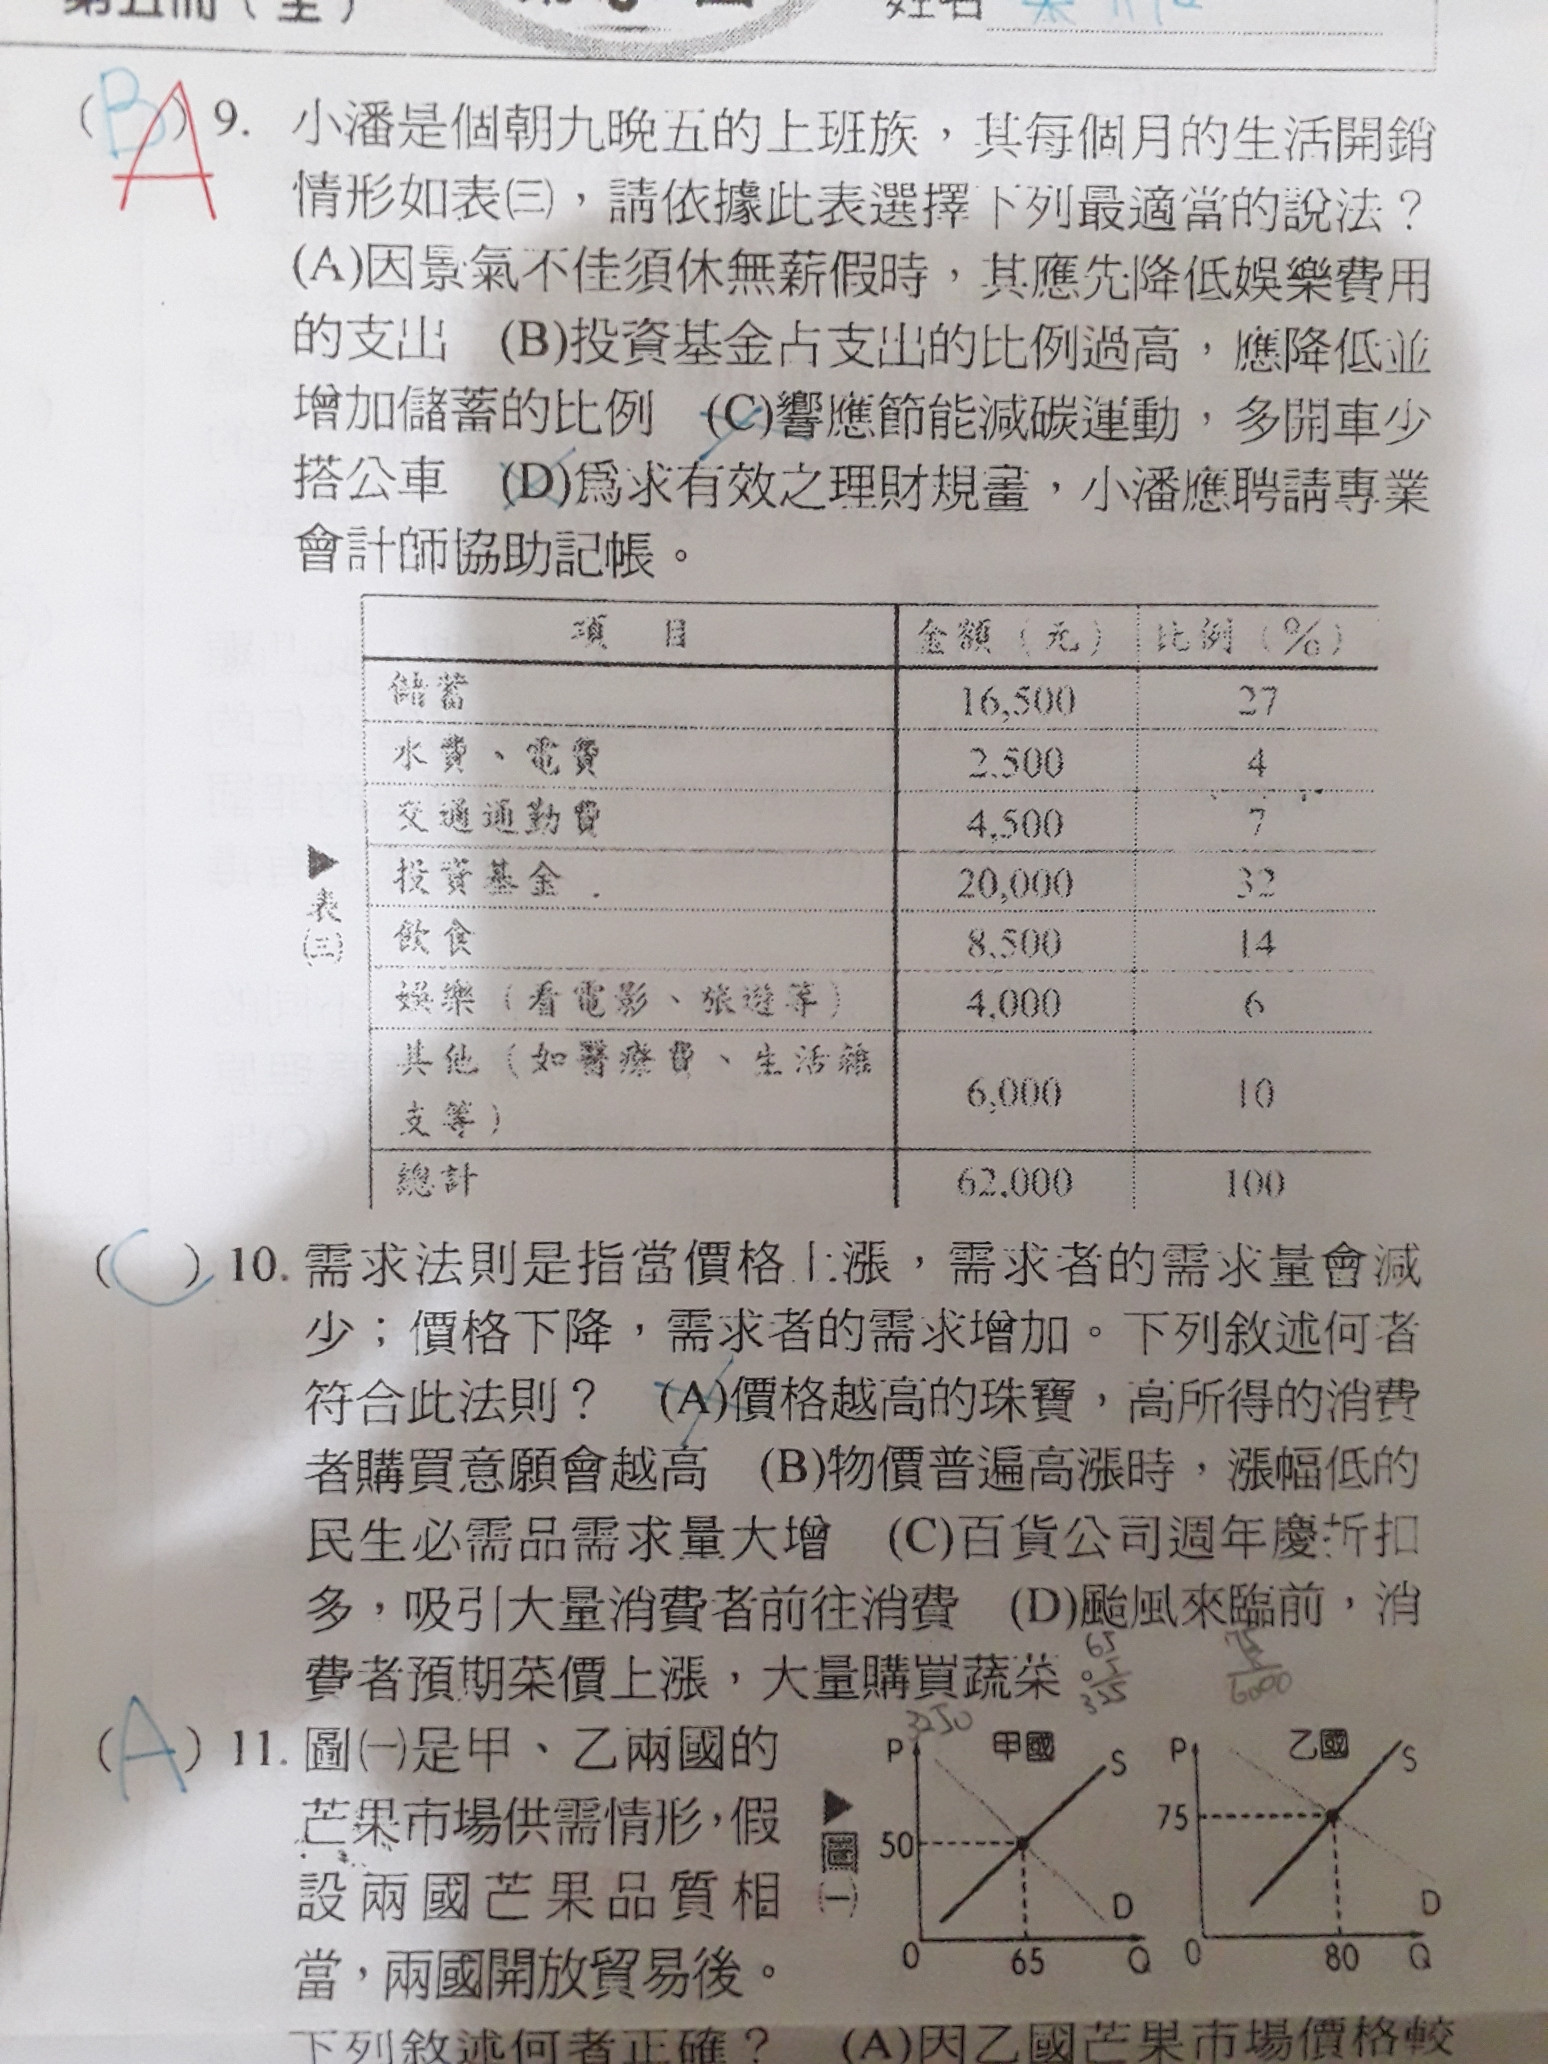 第五冊（全）
姓名
（B）A 9. 小潘是個朝九晚五的上班族，其每個月的生活開銷
情形如表㈢，請依據此表選擇下列最適當的說法？
(A)因景氣不佳須休無薪假時，其應先降低娛樂費用
的支出　(B)投資基金占支出的比例過高，應降低並
增加儲蓄的比例　(C)響應節能減碳運動，多開車少
搭公車　(D)為求有效之理財規畫，小潘應聘請專業
會計師協助記帳。
項　目　金額（元）　比例（%）
儲蓄　16,500　27
水費、電費　2,500　4
交通通勤費　4,500　7
▶表㈢　投資基金　20,000　32
飲食　8,500　14
娛樂（看電影、旅遊等）　4,000　6
其他（如醫療費、生活雜
支等）　6,000　10
總計　62,000　100
（C）10. 需求法則是指當價格上漲，需求者的需求量會減
少；價格下降，需求者的需求增加。下列敘述何者
符合此法則？　(A)價格越高的珠寶，高所得的消費
者購買意願會越高　(B)物價普遍高漲時，漲幅低的
民生必需品需求量大增　(C)百貨公司週年慶折扣
多，吸引大量消費者前往消費　(D)颱風來臨前，消
費者預期菜價上漲，大量購買蔬菜
65
3250
6000
（A）11. 圖㈠是甲、乙兩國的
芒果市場供需情形，假
設兩國芒果品質相
當，兩國開放貿易後。
下列敘述何者正確？　(A)因乙國芒果市場價格較
▶圖㈠
P 甲國 S
50
D
0 65 Q
P 乙國 S
75
D
0 80 Q